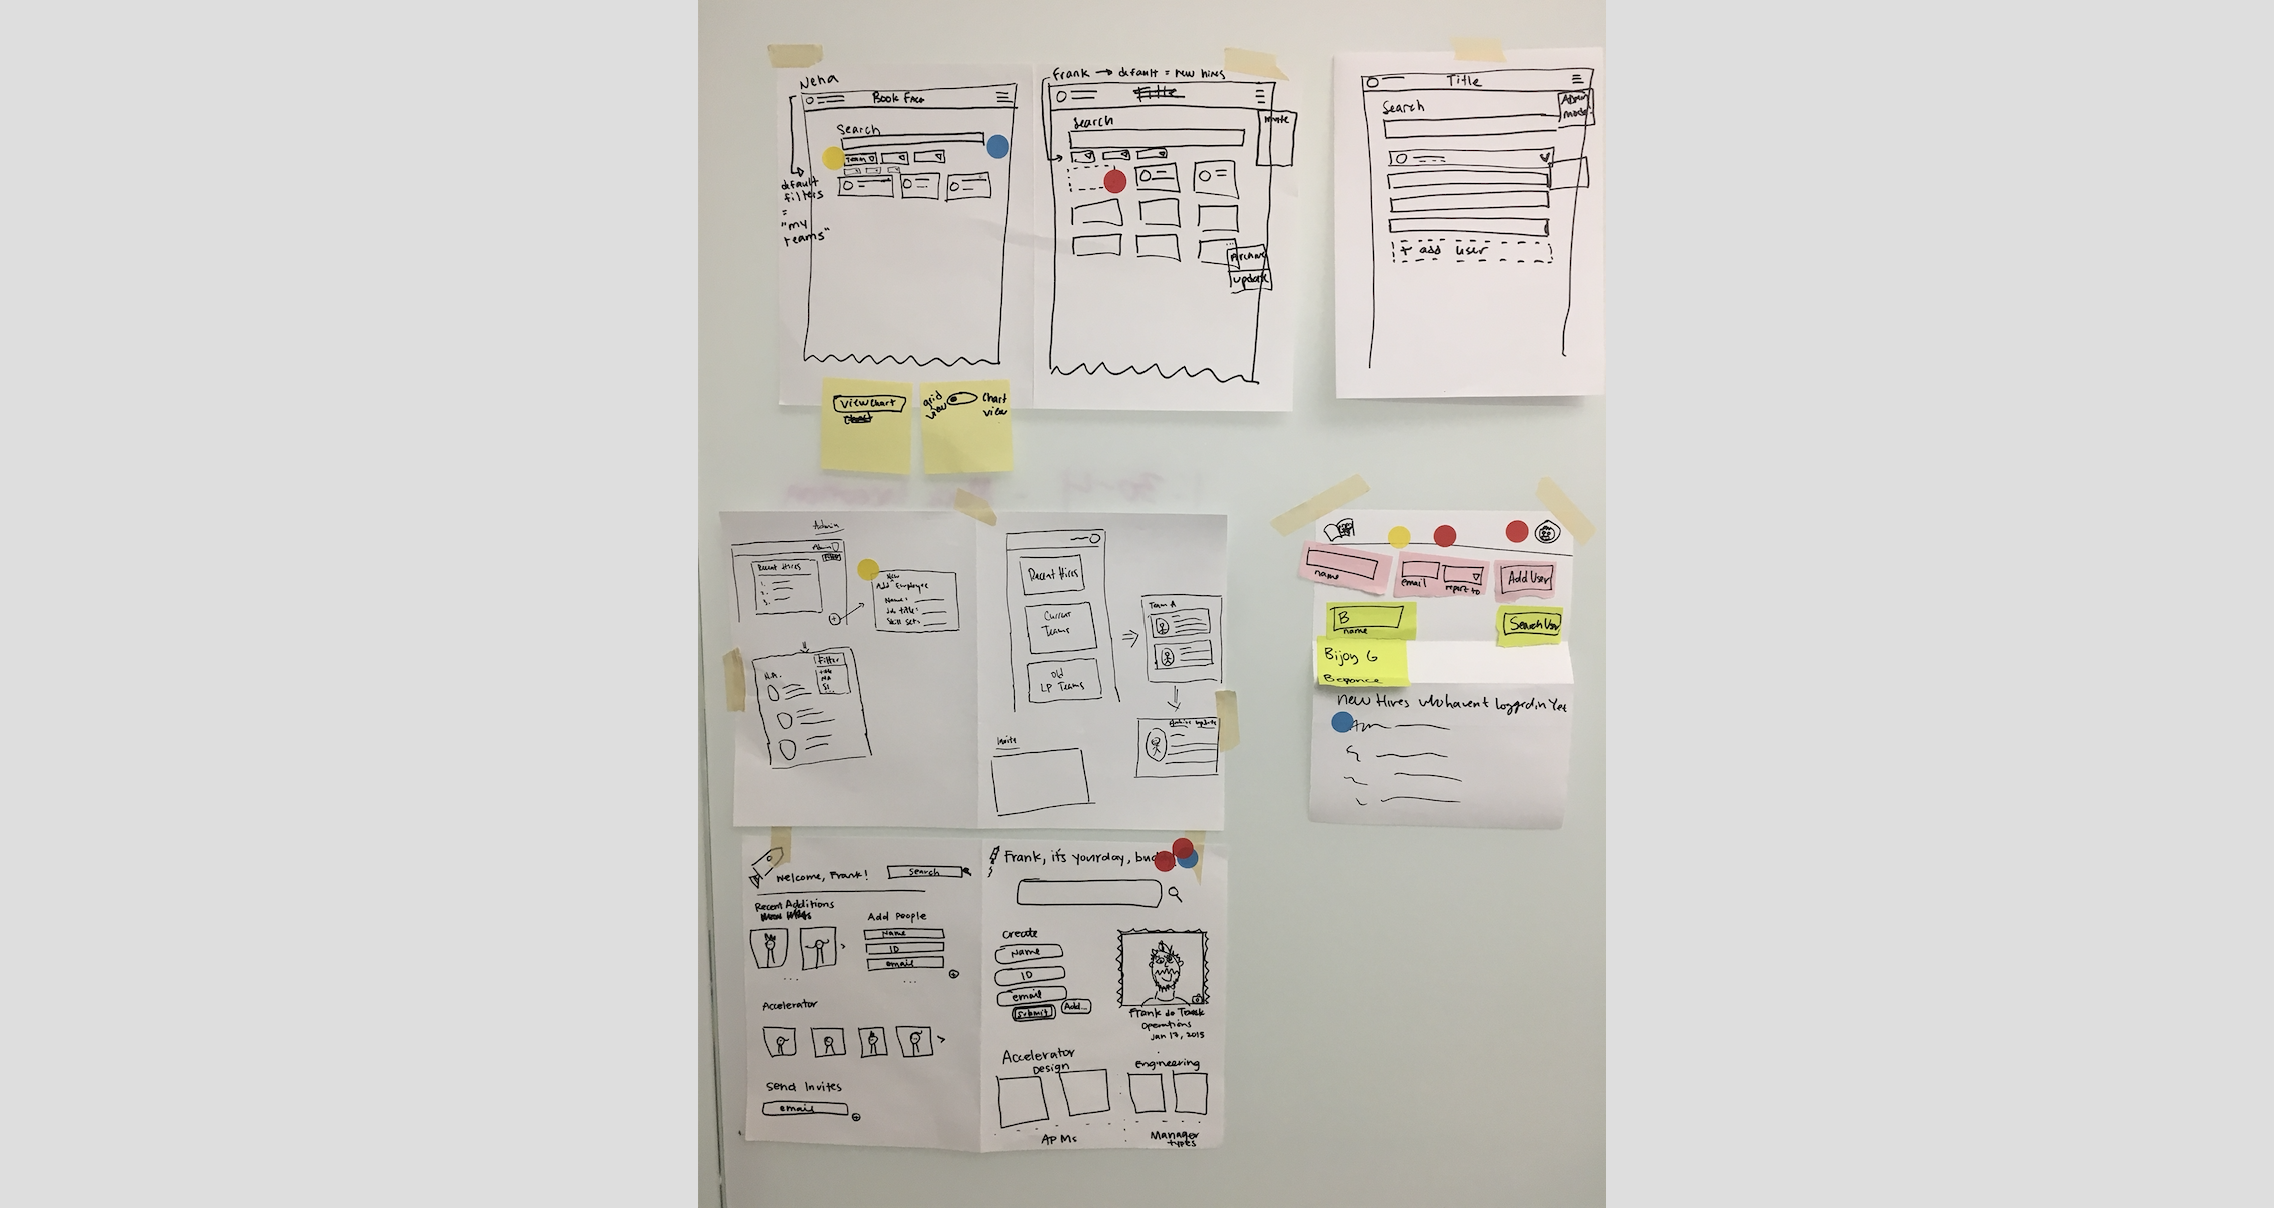 Neha
Book Face
Search
Team
default
filters
=
"my
teams"
Frank → default = new hires
Title
Search
invite
Archive
update
Title
Search
Admin
mode
+ add user
View Chart
grid
view
Chart
view
Admin
Admin
Recent Hires
1.
2.
3.
New
Add Employee
Name:
Job title:
Skill Set:
N.A.
Filter
title
NA
Recent Hires
Current
Teams
Old
LP Teams
Team A
update
Invite
name
email
report to
Add User
B
name
Search User
Bijoy G
Beyonce
new Hires who havent logged in Yet
Welcome, Frank!
search
Recent Additions
Add People
Name
ID
email
...
...
Accelerator
Send Invites
email
Frank, it's your day,
Create
Name
ID
email
submit
Add...
Frank do Trask
Operations
Jan 17, 2015
Accelerator
Design
Engineering
APMs
Manager
types